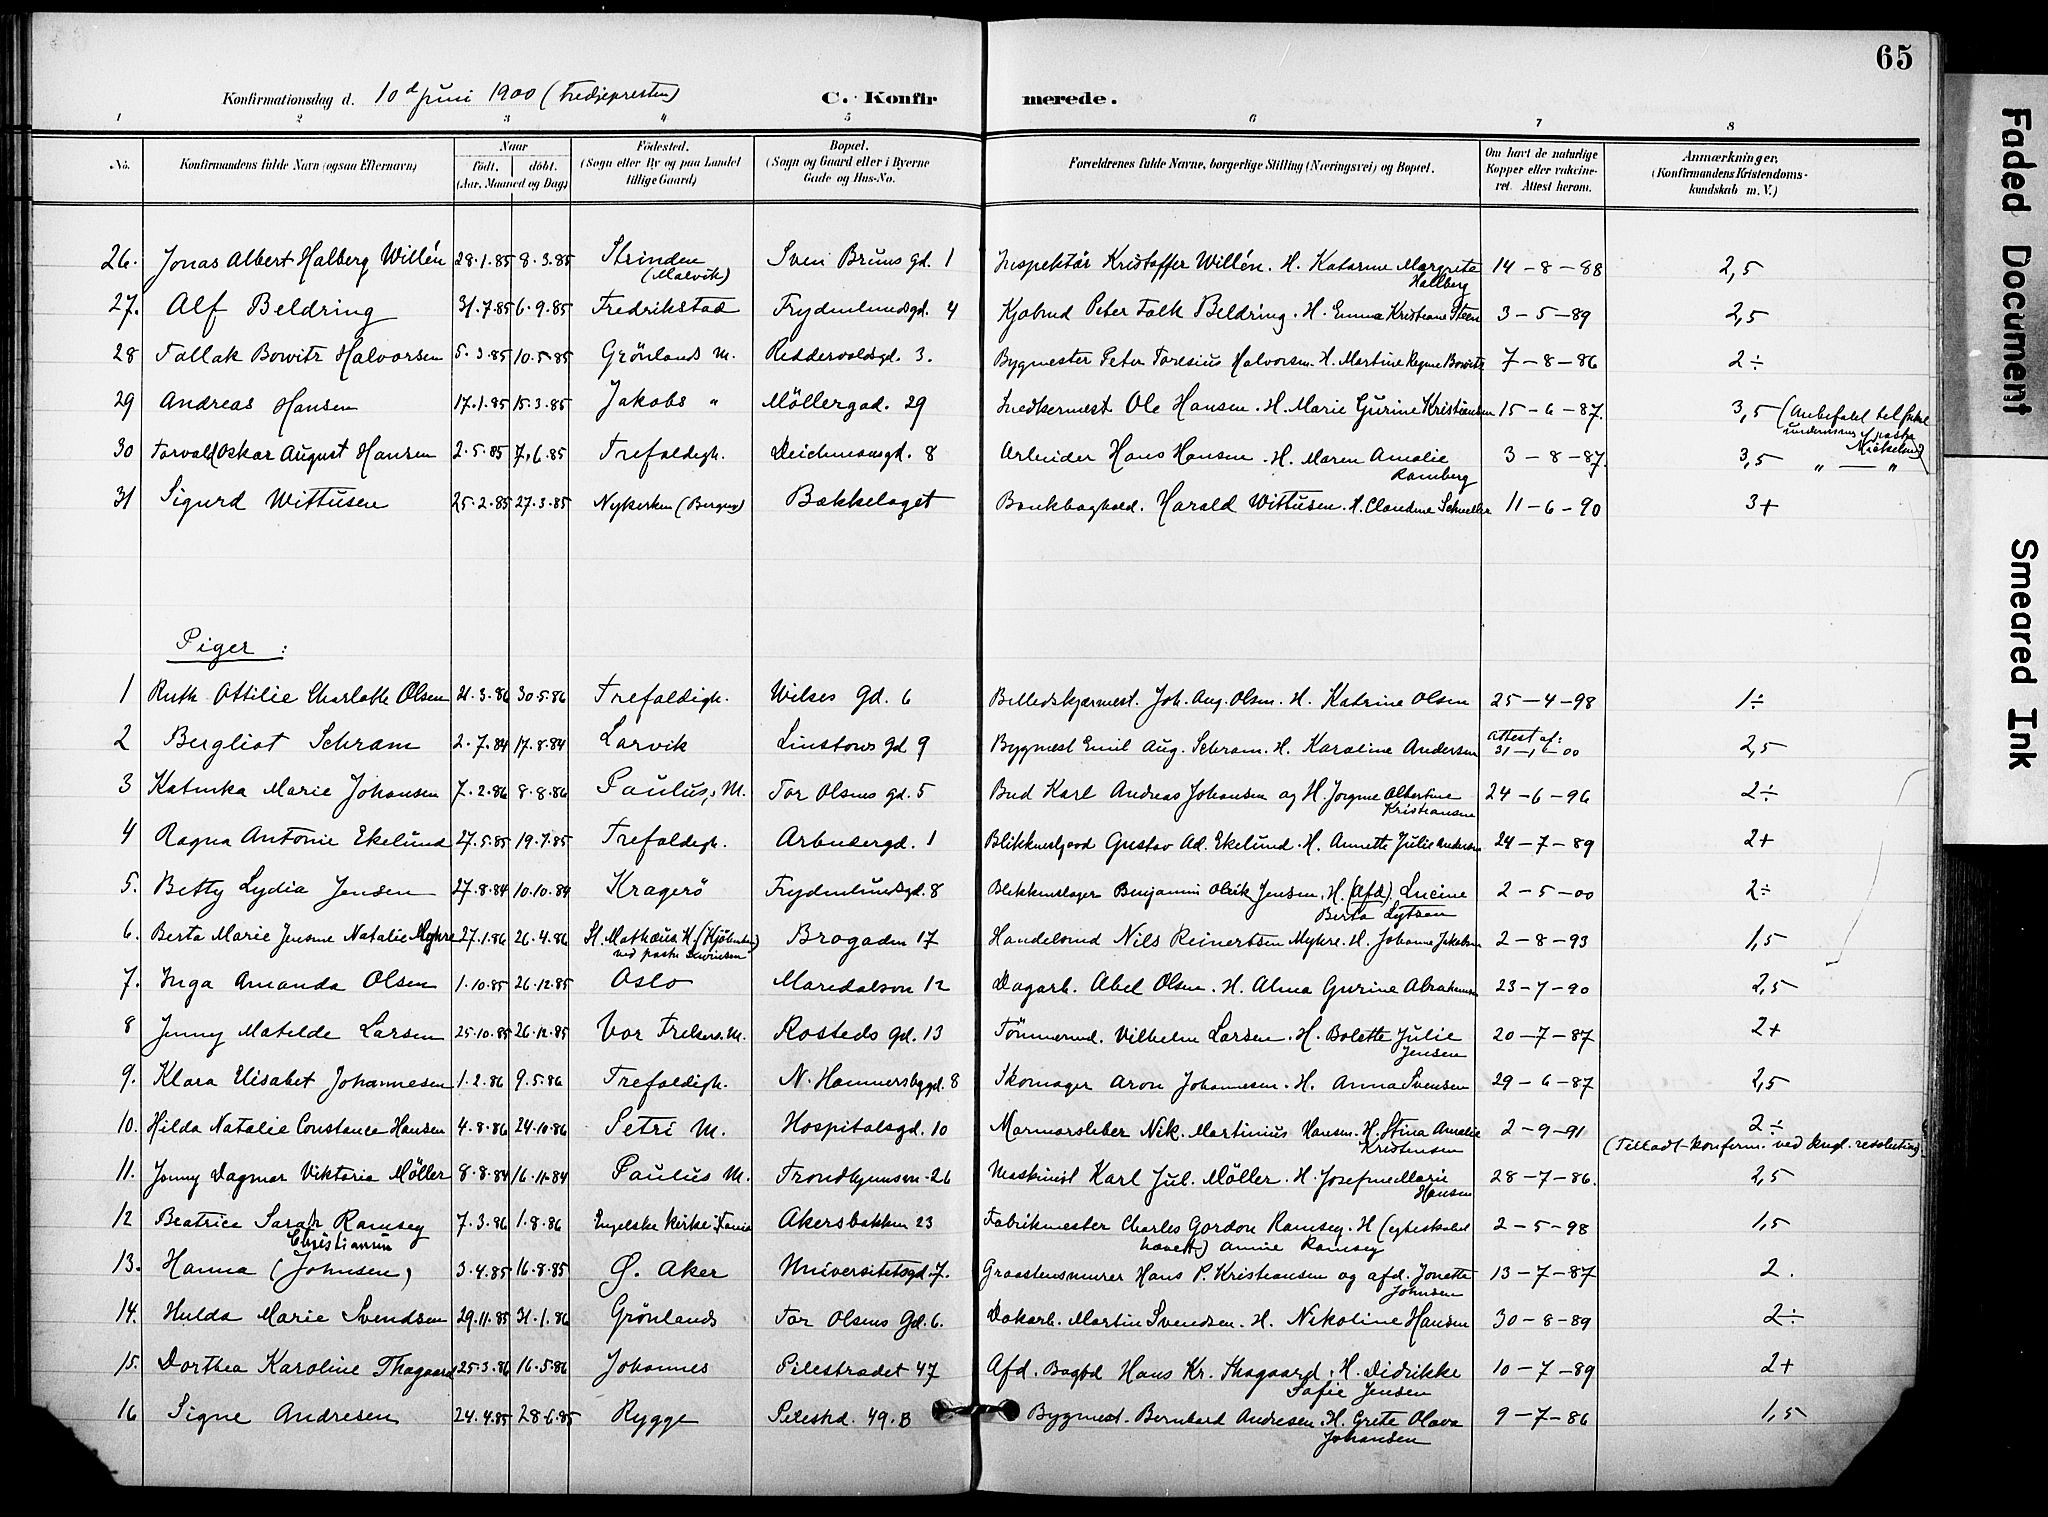 65
Konfirmationsdag d. 10d juni 1900 (Tredjepresten) C. Konfirmerede.
1 2 3 4 5 6 7 8
No. Konfirmandens fulde Navn (ogsaa Efternavn) Naar født, døbt. (Aar, Maaned og Dag) Födested. (Sogn eller By og paa Landet tillige Gaard) Bopæl. (Sogn og Gaard eller i Byerne Gade og Hus-No. Forældrenes fulde Navne, borgerlige Stilling (Næringsvei) og Bopæl. Om havt de naturlige Kopper eller vaccineret. Attest herom. Anmærkninger, (Konfirmandens Kristendomskundskab m. V.)
26. Jonas Albert Halberg Willén 28.1.85 8.3.85 Strinden (Malvik) Sven Bruns gd. 1 Inspektör Kristoffer Willén. H. Katarine Margrete Hallberg 14-8-88 2,5
27. Alf Beldring 31.7.85 6.9.85 Fredrikstad Frydenlundsgd. 4 Kjøbmd Peter Falk Beldring. H. Emma Kristiane Steen 3-5-89 2,5
28 Tallak Bowitz Halvorsen 5.3.85 10.5.85 Grönlands M. Reddervoldsgd. 3. Bygmester Peter Toresius Halvorsen. H. Martine Regine Bowitz 7-8-86 2÷
29 Andreas Hansen 17.1.85 15.3.85 Jakobs " Möllergad. 29 Snedkermest Ole Hansen. H. Marie Gurine Kristiansen 15-6-87. 3,5 (Anbefalet til
30 Torvald Oskar August Hansen 2.5.85 7.6.85 Trefoldigh. Deichmansgd. 8 Arbeider Hans Hansen. H. Maren Amalie Ramberg 3-8-87. 3,5 " — "
31 Sigurd Wittusen 25.2.85 27.3.85 Nykirken (Bergen) Bækkelaget Bankboghold. Harald Wittusen. H. Claudine Schnelle 11-6-90 3+
Piger:
1 Ruth Ottilie Charlotte Olsen 21.3.86 30.5.86 Trefoldigh. Wilses Gd. 6 Billedskjærmest. Joh. Aug. Olsen. H. Katrine Olsen 25-4-98 1÷
2 Bergliot Schram 2.7.84 17.8.84 Larvik Linstows gd 9 Bygmest Emil Aug. Schram. H. Karoline Andersen Attest af: 31-1-00 2,5
3 Katinka Marie Johansen 7.2.86 8.8.86 Paulus, M. Tor Olsens gd. 5 Bud Karl Andreas Johansen og H. Jörgine Albertine Kristiansen 24-6-96 2÷
4 Ragna Antonie Ekelund 27.5.85 19.7.85 Trefoldigh. Arbeidergd. 1 Blikkenslgood Gustav Ad. Ekelund. H. Annette Julie Andersen 24-7-89 2+
5. Betty Lydia Jensen 27.8.84 10.10.84 Kragerö Frydenlundsgd. 8 Blikkenslager Benjamin Olrik Jensen. H. (Afd.) Lucine Berta Lytson 2-5-00 2÷
6. Berta Marie Jensine Natalie Myhre 27.1.86 26.4.86 St. Mathæus K. (Kjøbenhn) Brogaden 17 Handelsmd Nils Reinertsen Myhre. H. Johanne Jakobsen 2-8-93 1,5
7. Inga Amanda Olsen 1.10.85 26.12.85 Oslo Maridalsvn 12 Dagarb. Abel Olsen. H. Alma Gurine Abrahamsen 23-7-90 2,5
8 Jenny Matilde Larsen 25.10.85 26.12.85 Vor Frelsers. M. Rosteds gd. 13 Tömmermd. Vilhelm Larsen. H. Bolette Julie Jensen 20-7-87 2+
9. Klara Elisabet Johannesen 1.2.86 9.5.86 Trefoldigh. N. Hammersbggd. 8 Skomager Aron Johannesen. H. Anna Svensen 29-6-87 2,5
10. Hilda Natalie Constance Hansen 4.8.86 24.10.86 Petri M. Hospitalsgd. 10 Marmorsleber Nik. Martinius Hansen. H. Stina Amalie Kristensen 2-9-91 2÷ (Tilladt konfirm. ved kngl. resolution).
11. Jenny Dagmar Viktoria Möller 8.8.84 16.11.84 Paulus M. Trondhjemsvn. 26 Maskinist Karl Jul. Möller. H. Josefine Marie Hansen 28-7-86. 2,5
12 Beatrice Sarah Ramsey 7.3.86 1.8.86 Engelske Kirke i Akersbakken 23 Fabrikmester Charles Gordon Ramsey. H (egteskabet hævet) Annie Ramsey 2-5-98 1,5
13. Hanna Christiansen (Johnsen) 3.4.85 16.8.85 Ø. Aker Universitetsgd. 7. Graastensmurer Hans P. Kristiansen og afd. Jonette Johnsen 13-7-87 2.
14. Hulda Marie Svendsen 29.11.85 31.1.86 Grönlands Tor Olsens Gd. 6. Dokarb. Martin Svendsen. H. Nikoline Hansen 30-8-89 2÷
15. Dorthea Karoline Thagaard 25.3.86 16.5.86 Johannes Pilestrædet 47 Afd. Bagbd Hans Kr. Thagaard. H. Didrikke Sofie Jensen 10-7-89 2+
16 Signe Andresen 24.4.85 28.6.85 Rygge Pilestrd. 49.B Bygmest. Bernhard Andresen. H. Grete Olava Johansen 9-7-86 1,5
Faded Document
Smeared Ink